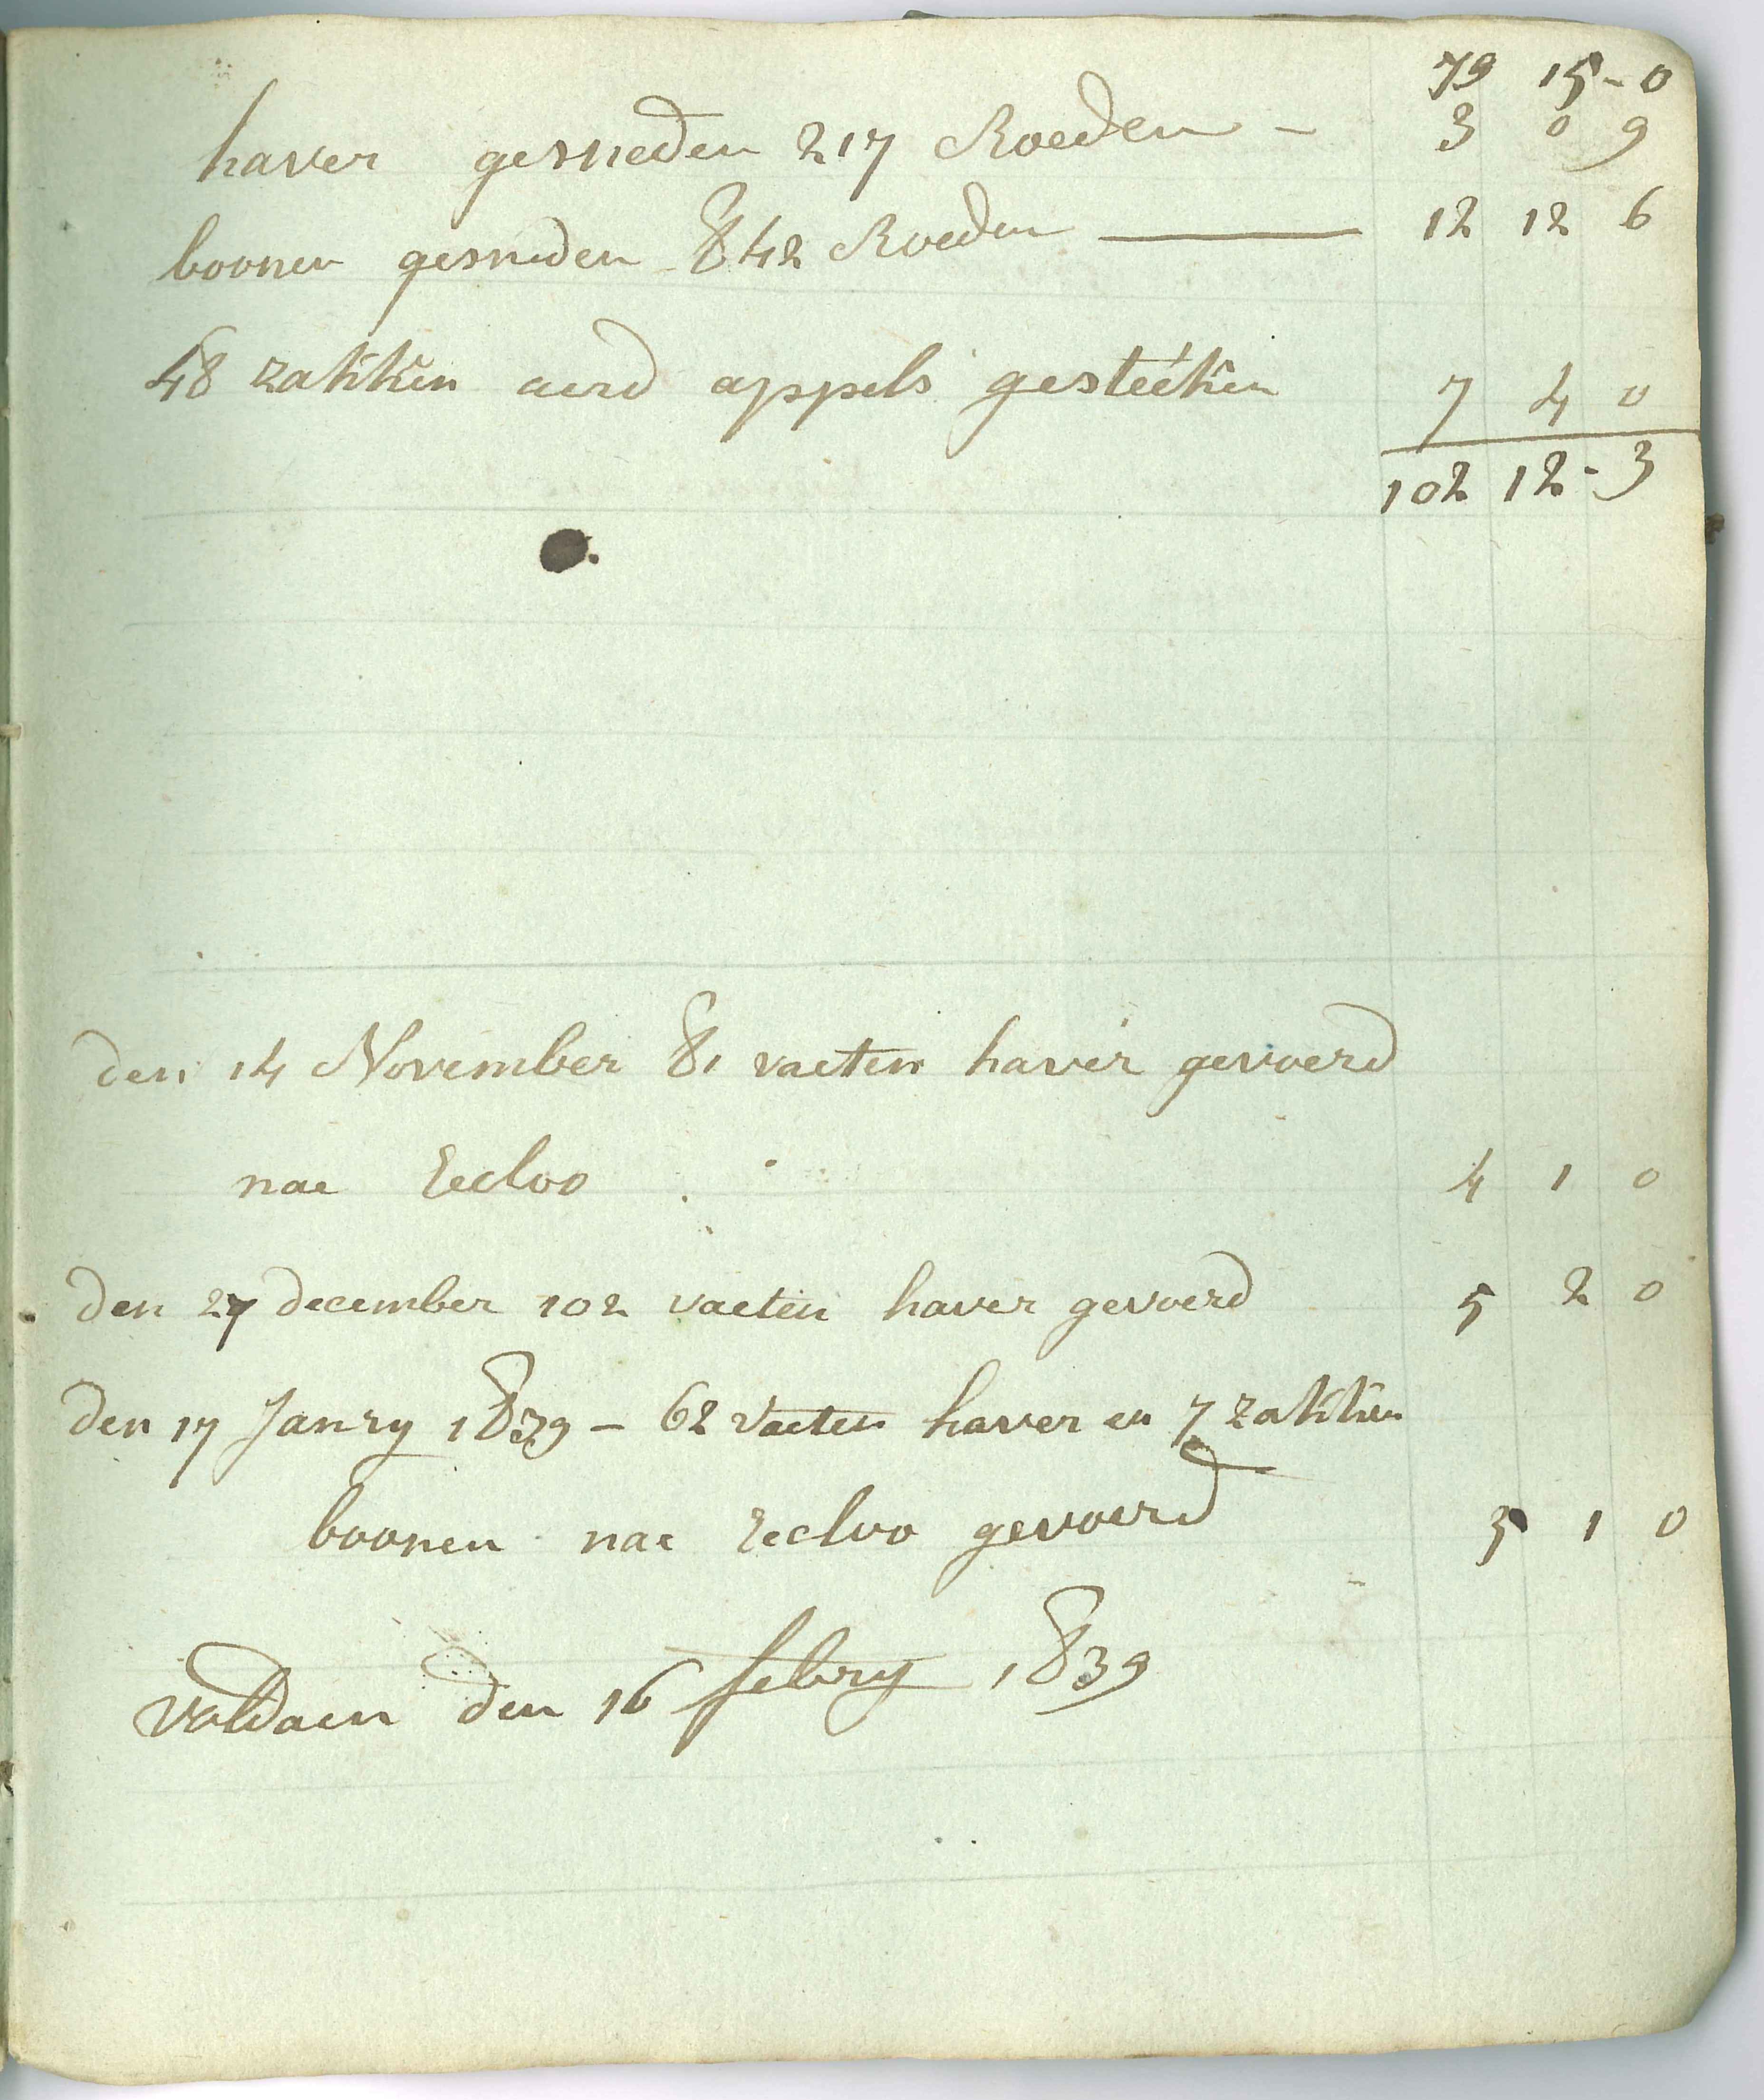 79 15-0
haver gesneden 217 Roeden - 3 0 9
boonen gesneden 842 Roeden — 12 12 6
48 zakken aerd appels gesteéken 7 4 0
102 12-3
den 14 November 81 vaeten haver gevoerd
nae Eecloo 4 1 0
den 27 december 102 vaeten haver gevoerd 5 2 0
den 17 Janry 1839 – 62 vaeten haver en 7 zakken
boonen nae Eecloo gevoerd 5 1 0
voldaen den 16 febry 1839